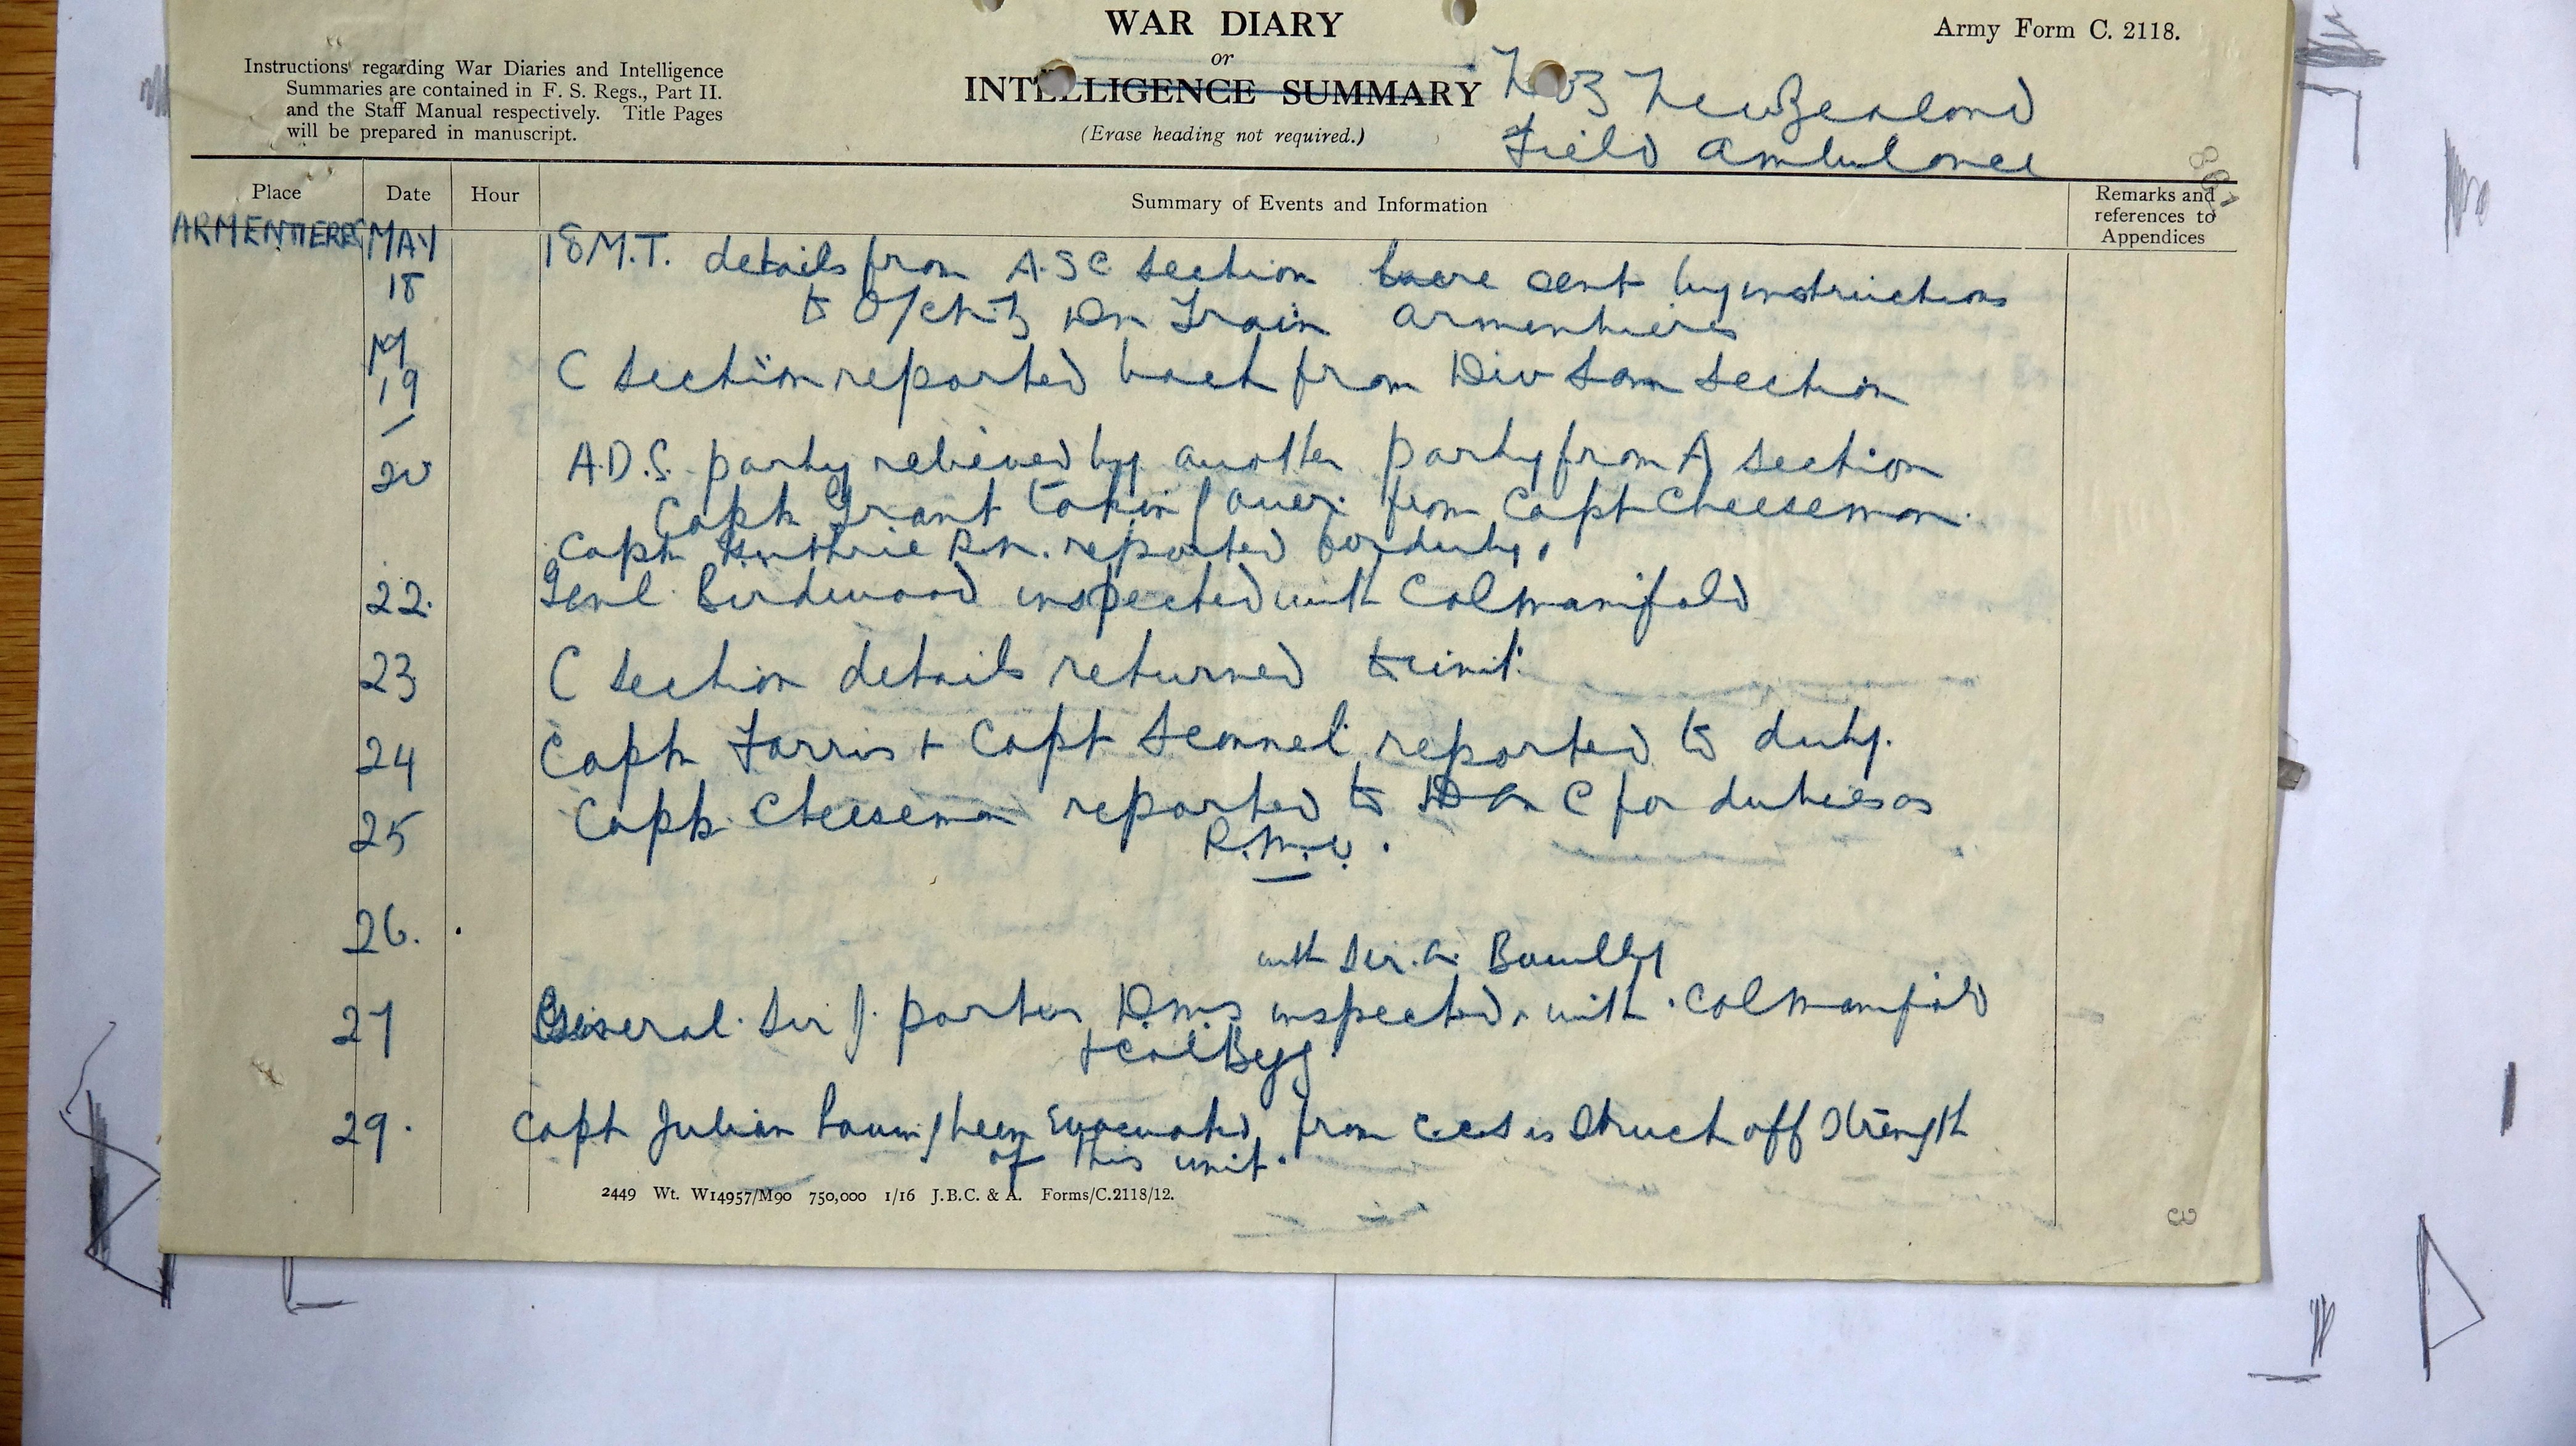 WAR DIARY
or
INTELLIGENCE SUMMARY
(Erase heading not required.)
Army Form C. 2118.
Instructions regarding War Diaries and Intelligence
Summaries are contained in F. S. Regs., Part II.
and the Staff Manual respectively. Title Pages
will be prepared in manuscript.
No 3 New Zealand
Field Ambulance
Place Date Hour Summary of Events and Information Remarks and references to Appendices
ARMENTIERES MAY
18 18 M.T. details from A.S.C. section were sent by instructions
to O/C N.Z Dn Train Armentieres
19 C section reported back from Div San Section
20 A.D.S. party relieved by another party from A section
Capt Grant taking over from Capt Cheeseman.
Capt Guthrie R.N. reported for duty.
22. Genl. Birdwood inspected with Col Manifold
23 C section details returned to unit.
24 Capt Farris + Capt reported to duty.
25 Capt. Cheeseman reported to D A C for duties as
R.M.O.
26.
with Sir. A. Bowlby
27 General. Sir J. Porter D.M.S inspected, with Col Manifold
+ Col Begg
29. Capt Julian having been evacuated from C.C.S is struck off strength
of this unit.
2449 Wt. W14957/M90 750,000 1/16 J.B.C. & A. Forms/C.2118/12.
3